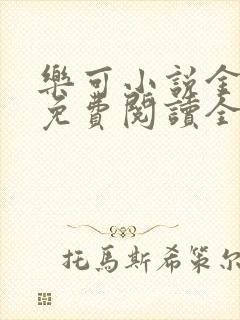 樂可小說全
免費閱讀全
托馬斯希策尔